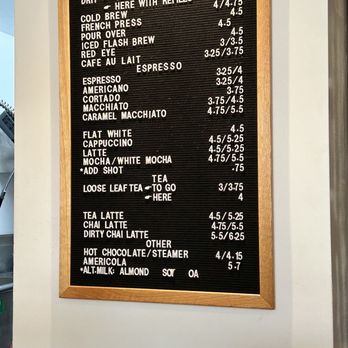 HERE WITH REFILLS 4/4.75
COLD BREW 4.5
FRENCH PRESS 4.5
POUR OVER 4.5
ICED FLASH BREW 3/3.5
RED EYE 3.25/3.75
CAFE AU LAIT
ESPRESSO
ESPRESSO 3.25/4
AMERICANO 3.25/4
CORTADO 3.75
MACCHIATO 3.75/4.5
CARAMEL MACCHIATO 4.75/5.5
FLAT WHITE 4.5
CAPPUCCINO 4.5/5.25
LATTE 4.5/5.25
MOCHA/WHITE MOCHA 4.75/5.5
*ADD SHOT .75
TEA
LOOSE LEAF TEA TO GO 3/3.75
HERE 4
TEA LATTE 4.5/5.25
CHAI LATTE 4.75/5.5
DIRTY CHAI LATTE 5.5/6.25
OTHER
HOT CHOCOLATE/STEAMER 4/4.15
AMERICOLA 5.7
*ALT-MILK: ALMOND SOY OA